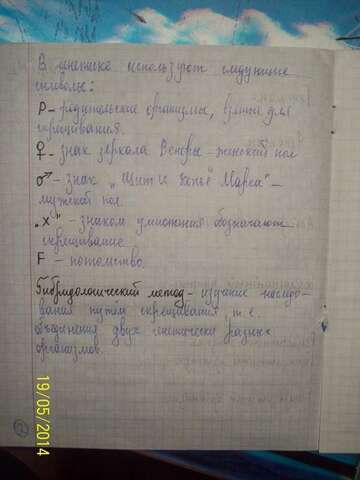 В генетике используют следующие
символы:
P – родительские организмы, взятые для
скрещивания.
♀ – знак зеркала Венеры – женский пол
♂ – знак „Щит и копьё" Марса" –
мужской пол.
„x" – знаком умножения обозначают
скрещивание
F – потомство.
Гибридологический метод – изучение наследо-
вания путём скрещивания, т.е.
объединения двух генетически разных
организмов.
19/05/2014